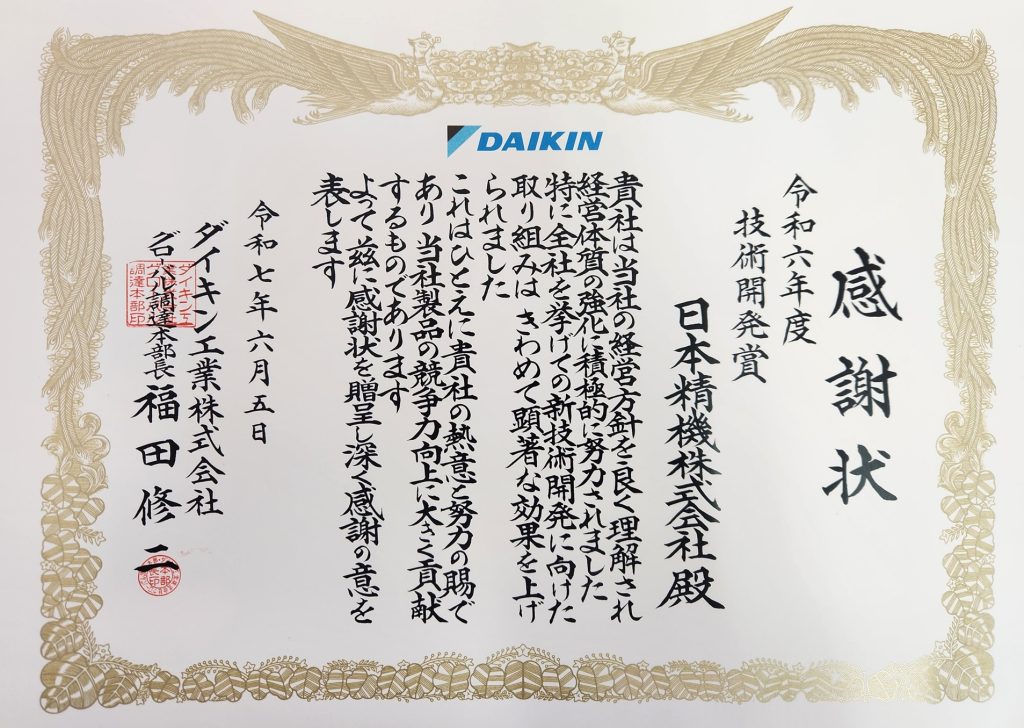 DAIKIN
感謝状
令和六年度
技術開発賞
日本精機株式会社殿
貴社は当社の経営方針を良く理解され
経営体質の強化に積極的に努力されました
特に全社を挙げての新技術開発に向けた
取り組みは きわめて顕著な効果を上げ
られました
これはひとえに貴社の熱意と努力の賜で
あり 当社製品の競争力向上に大きく貢献
するものであります
よって 茲に感謝状を贈呈し深く感謝の意を
表します
令和七年六月五日
ダイキン工業株式会社
グローバル調達本部長 福田修二